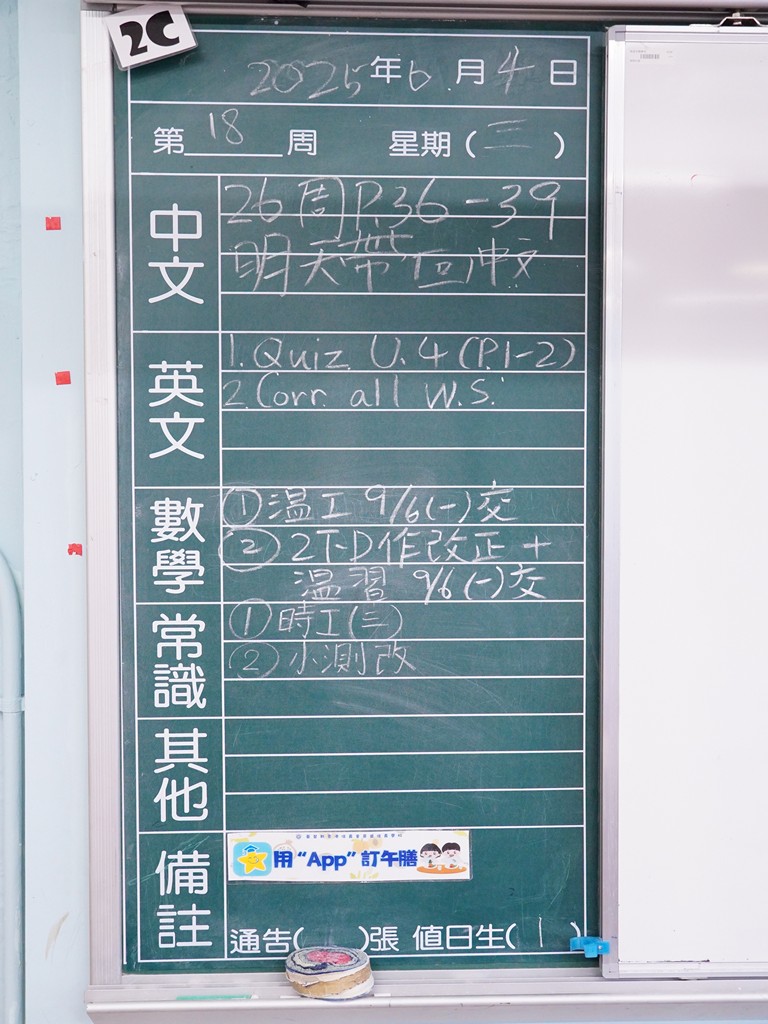 2C
2025年6月4日
第18周 星期(三)
中文
26周P.36-39
明天帶回中文
英文
1. Quiz U.4 (P.1-2)
2. Corr. all W.S.
數學
① 溫工 9/6(一)交
② 2T-D作改正+
溫習 9/6(一)交
常識
① 時工(三)
② 小測改
其他
備註
用“App”訂午膳
通告( )張 值日生(1)